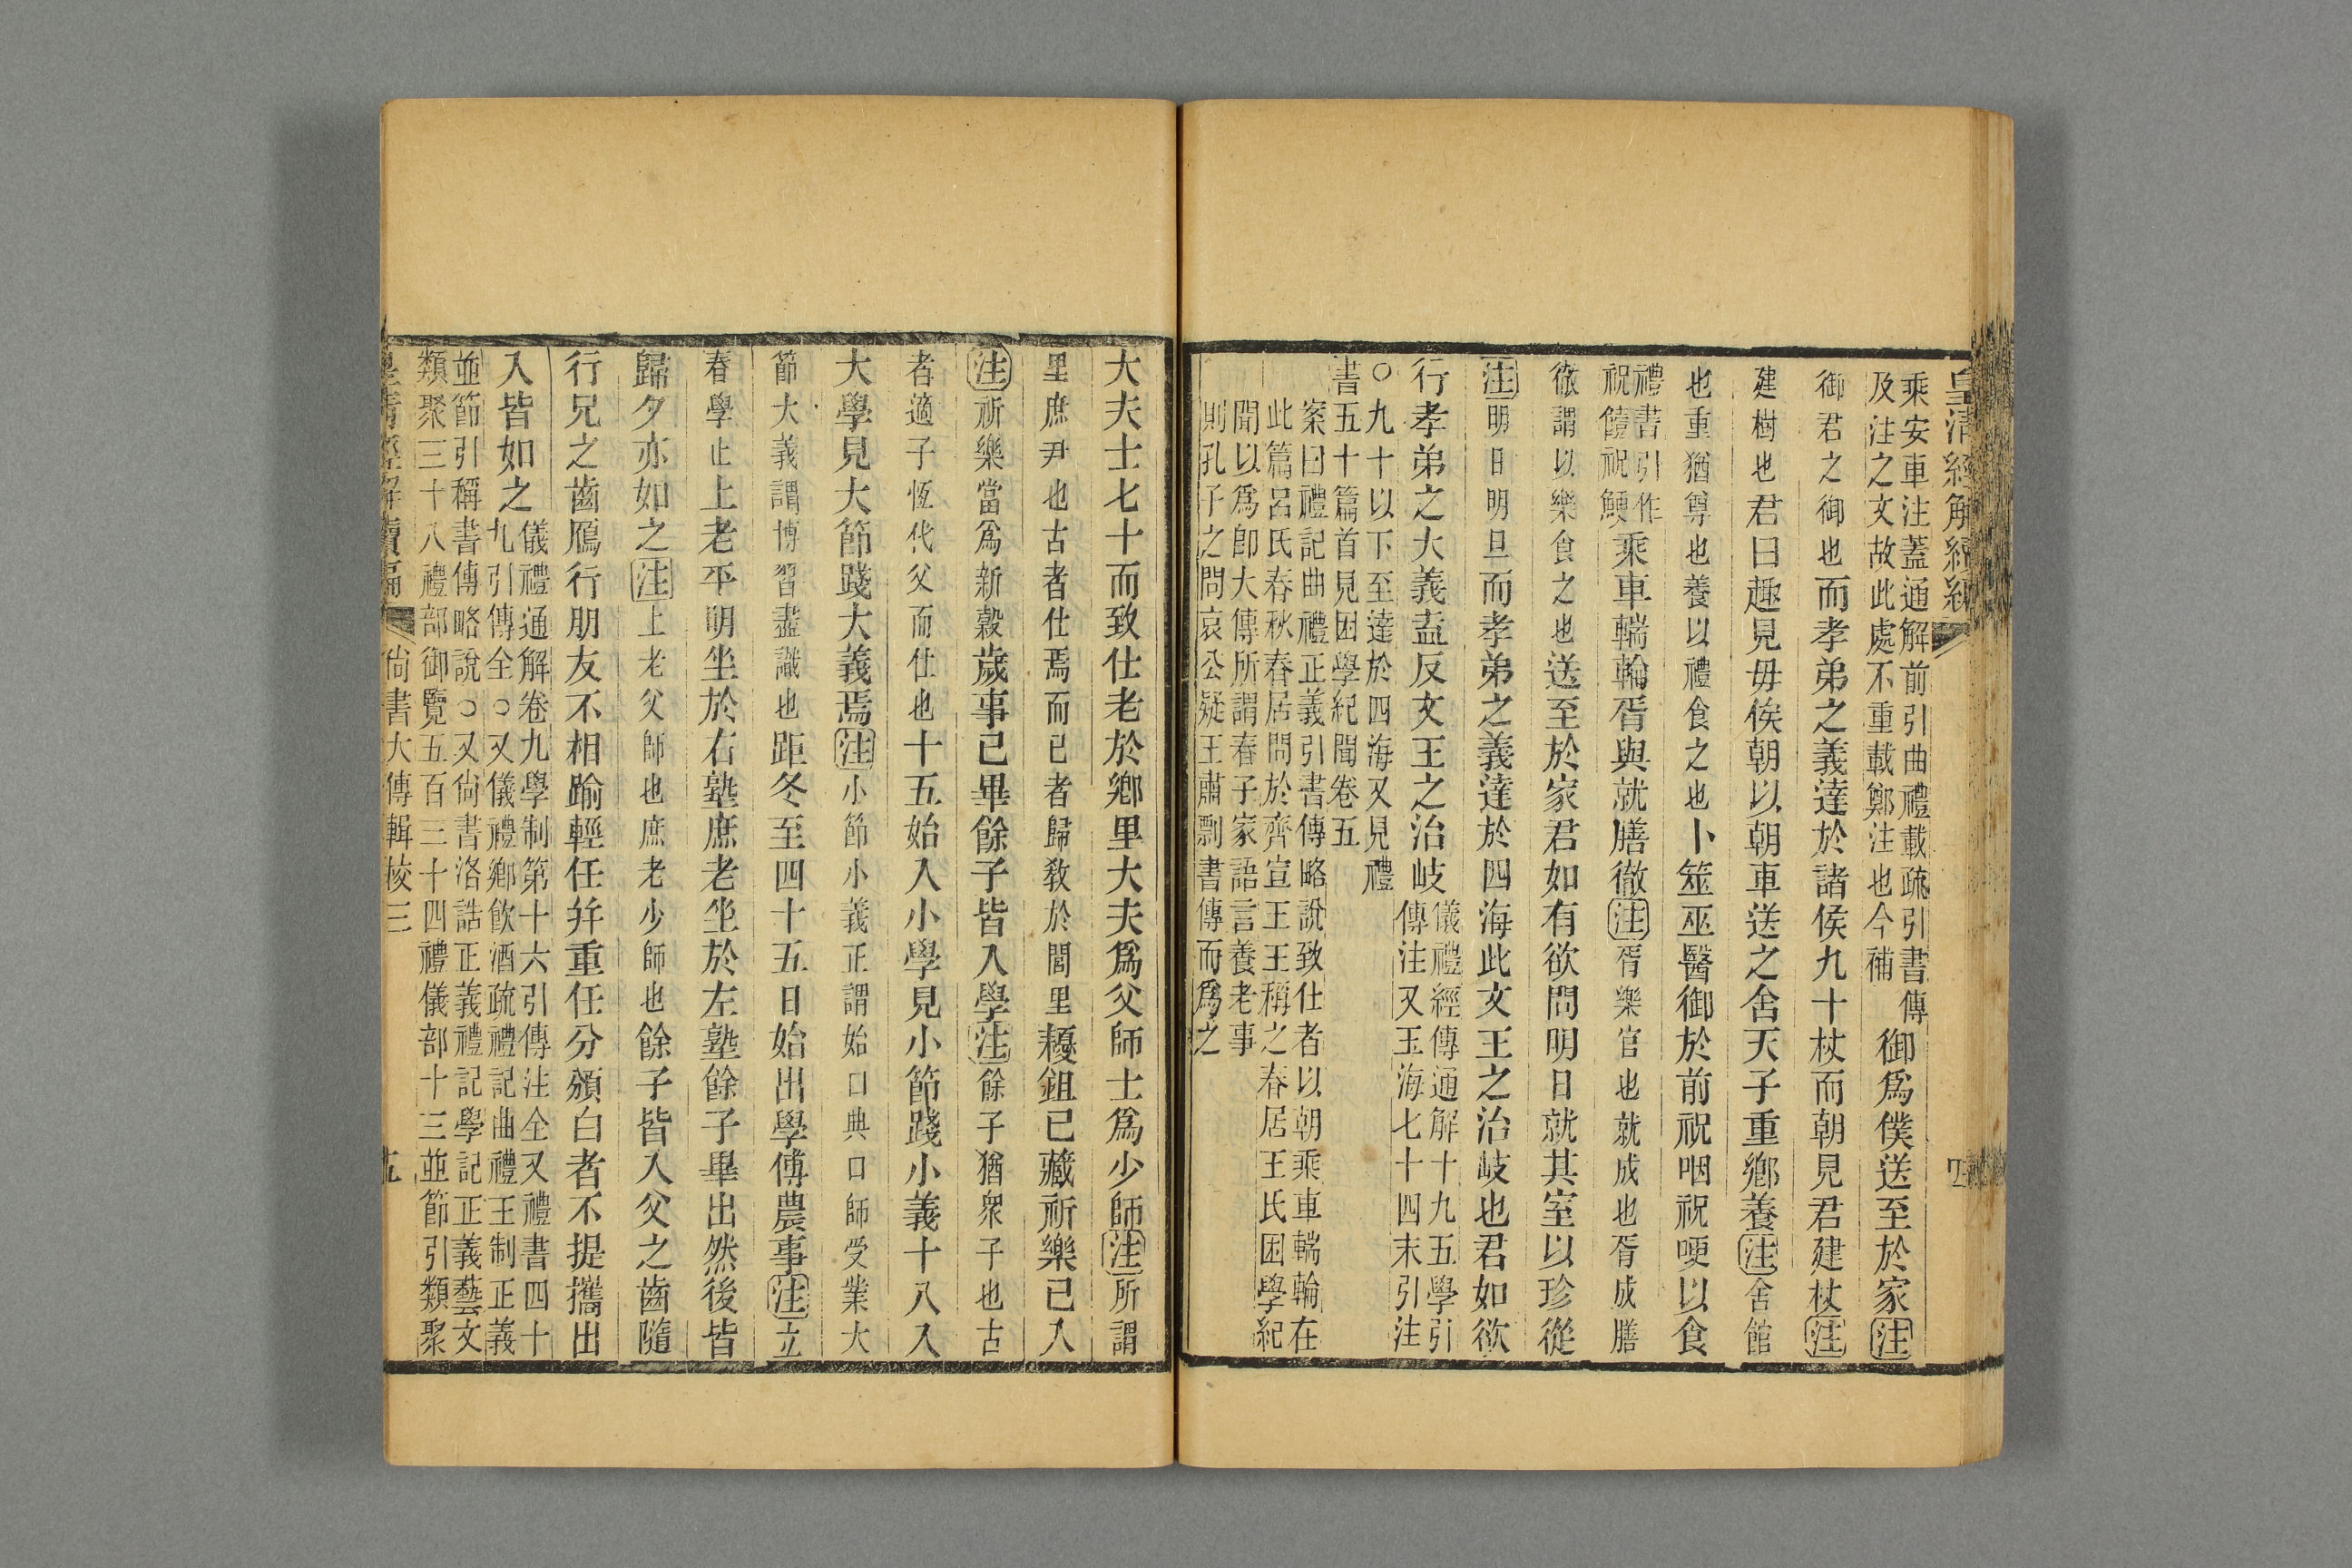 皇清經解續編
乘安車注蓋通解前引曲禮載疏引書傳
及注之文故此處不重載鄭注也今補
御爲僕送至於家注
御君之御也而孝弟之義達於諸侯九十杖而朝見君建杖注
建樹也君曰趣見毋俟朝以朝車送之舍天子重鄉養注舍館
也重猶尊也養以禮食之也卜筮巫醫御於前祝咽祝哽以食
禮書引作
祝饐祝鯁
乘車輲輪胥與就膳徹注胥樂官也就成也胥成膳
徹謂以樂食之也送至於家君如有欲問明日就其室以珍從
注明日明旦而孝弟之義達於四海此文王之治岐也君如欲
行孝弟之大義盍反文王之治岐
儀禮經傳通解十九五學引
傳注又玉海七十四末引注
○九十以下至達於四海又見禮
書五十篇首見困學紀聞卷五
案曰禮記曲禮正義引書傳略說致仕者以朝乘車輲輪在
此篇呂氏春秋春居問於齊宣王王稱之春居王氏困學紀
聞以爲卽大傳所謂春子家語言養老事
則孔子之問哀公疑王肅剽書傳而爲之
大夫士七十而致仕老於鄉里大夫爲父師士爲少師注所謂
里庶尹也古者仕焉而已者歸教於閭里耰鉏已藏祈樂已入
注祈樂當爲新穀歲事已畢餘子皆入學注餘子猶衆子也古
者適子恆代父而仕也十五始入小學見小節踐小義十八入
大學見大節踐大義焉注小節小義正謂始口典口師受業大
節大義謂博習盡識也距冬至四十五日始出學傅農事注立
春學止上老平明坐於右塾庶老坐於左塾餘子畢出然後皆
歸夕亦如之注上老父師也庶老少師也餘子皆入父之齒隨
行兄之齒鴈行朋友不相踰輕任幷重任分頒白者不提攜出
入皆如之
儀禮通解卷九學制第十六引傳注全又禮書四十
九引傳全○又儀禮鄉飲酒疏禮記曲禮王制正義
並節引稱書傳略說○又尙書洛誥正義禮記學記正義藝文
類聚三十八禮部御覽五百三十四禮儀部十三並節引類聚
皇清經解續編
尙書大傳輯校三